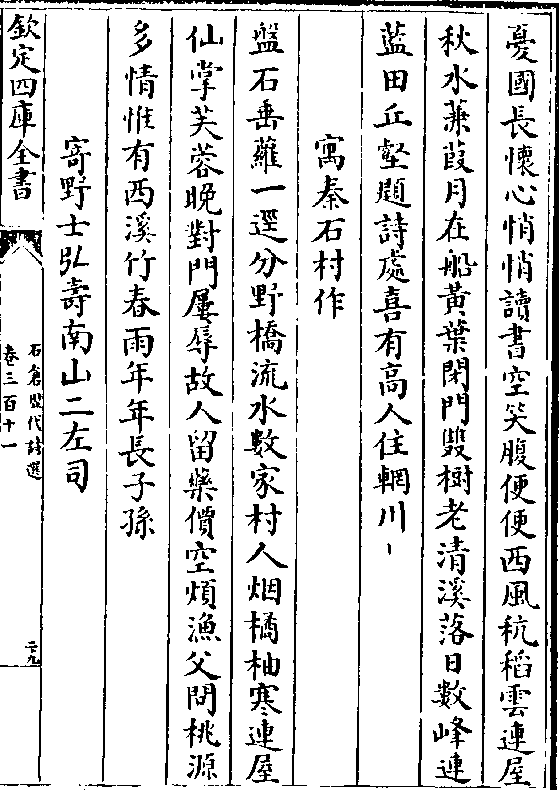 憂國長懷心悄悄讀書空笑腹便便西風秔稻雲連屋
秋水蒹葭月在船黃葉閉門雙樹老清溪落日數峰連
藍田丘壑題詩處喜有高人住輞川
寓秦石村作
盤石垂蘿一逕分野橋流水數家村人烟橘柚寒連屋
仙掌芙蓉晚對門屢辱故人留藥價空煩漁父問桃源
多情惟有西溪竹春雨年年長子孫
寄野士弘壽南山二左司
欽定四庫全書
石倉歷代詩選
卷三百十一
二十九